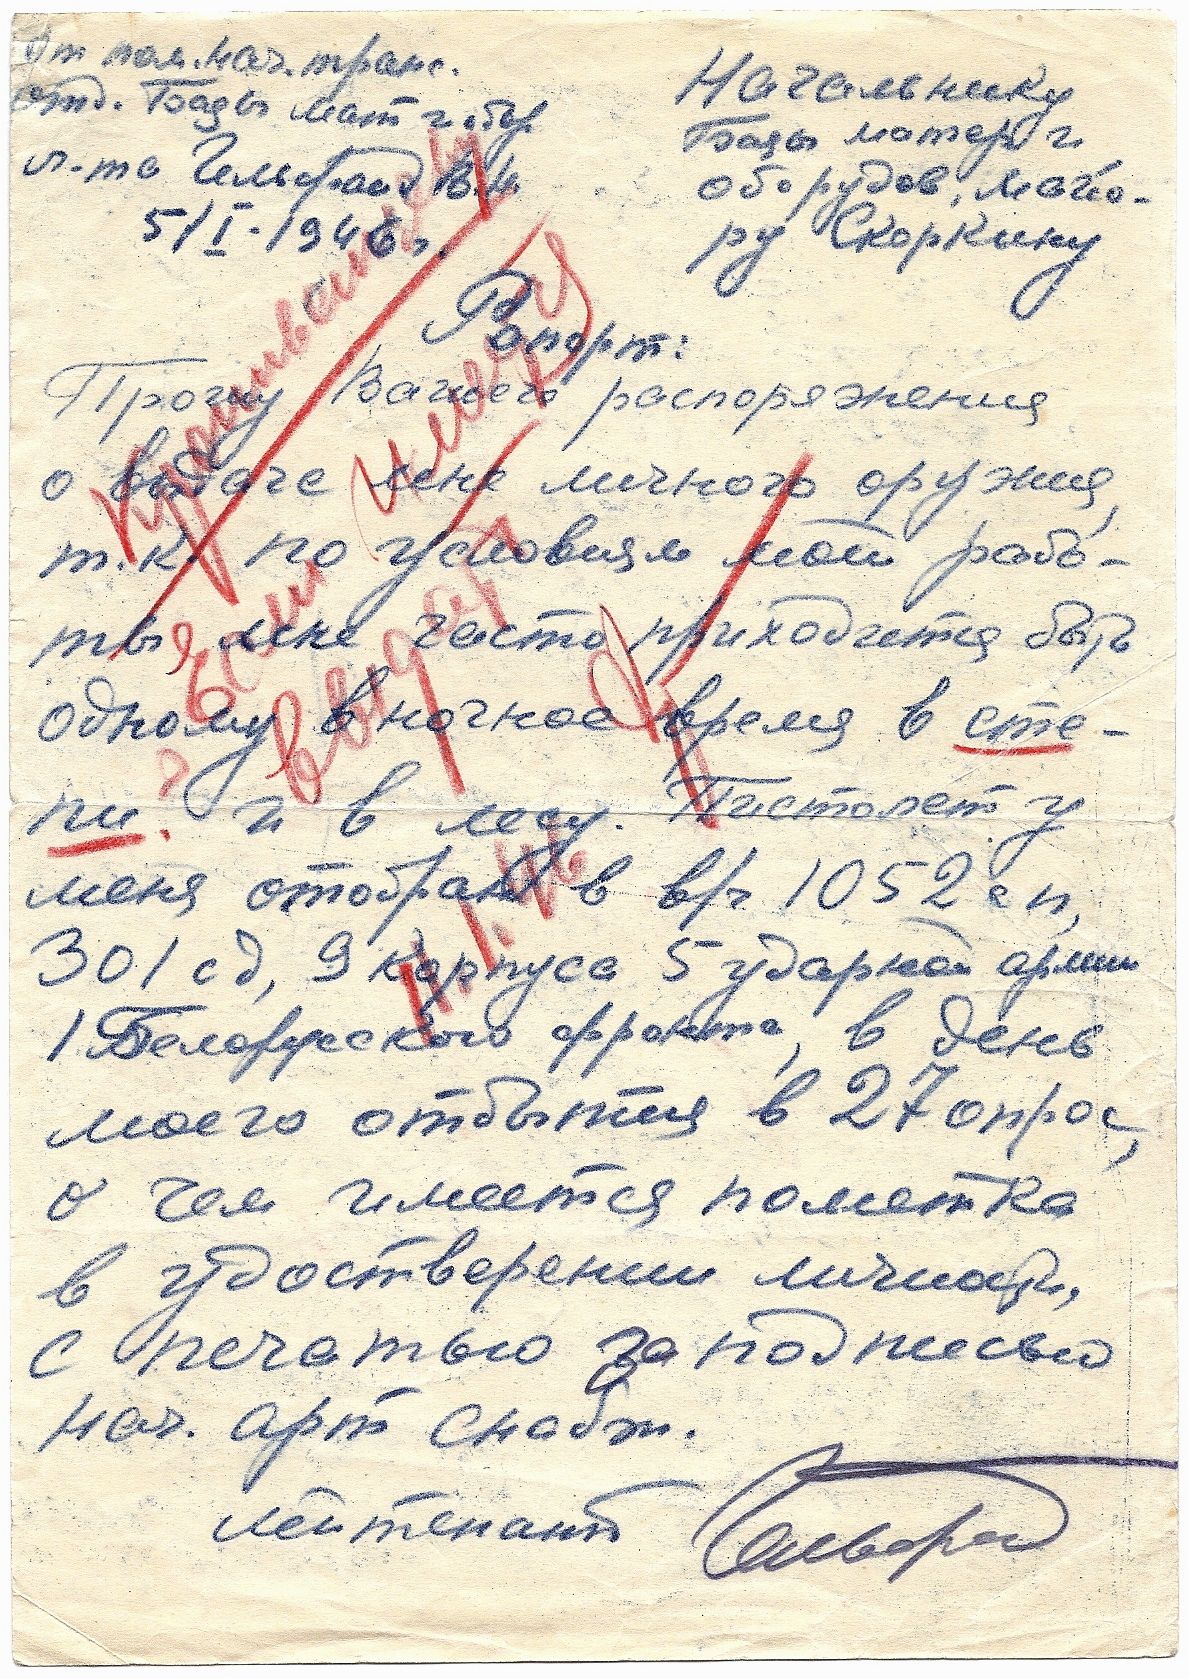 От пом. нач. транс.
отд. Базы мат и обор
л-та Гельфанд В.Н.
5/I-1946 г.
Начальнику
Базы матер и
оборудов. майо-
ру Скоркину
Рапорт:
Прошу Вашего распоряжения
о выдаче мне личного оружия,
т.к. по условиям моей рабо-
ты мне часто приходится быть
одному в ночное время в сте-
пи и в лесу. Пистолет у
меня отобран в в/ч 1052 сп,
301 сд, 9 корпуса 5 ударной армии
1 Белорусского фронта, в день
моего отбытия в 27 опрос,
о чем имеется пометка
в удостверении личности,
с печатью за подписью
нач. арт снабж.
лейтенант Гельфанд
? Если
в виду